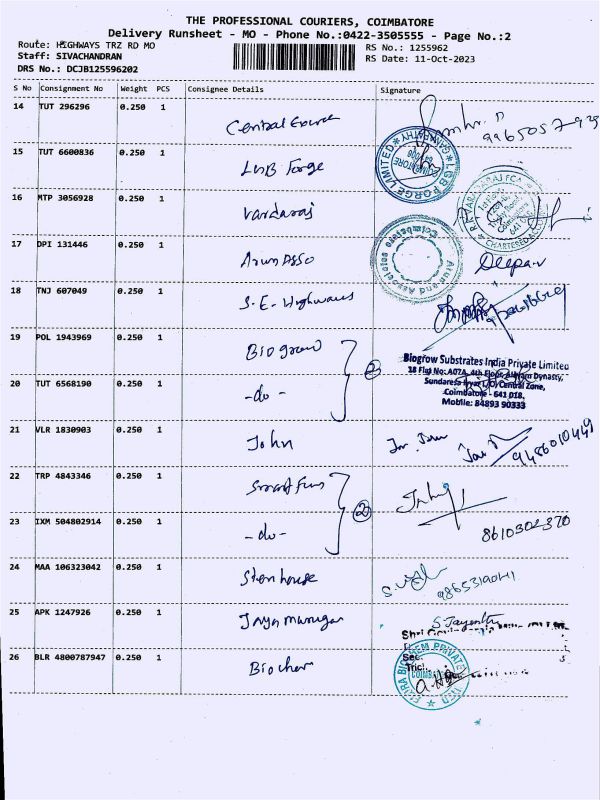 THE PROFESSIONAL COURIERS, COIMBATORE
Delivery Runsheet - MO - Phone No.:0422-3505555 - Page No.:2
Route: HIGHWAYS TRZ RD MO
RS No.: 1255962
Staff: SIVACHANDRAN
RS Date: 11-Oct-2023
DRS No.: DCJB125596202
S No Consignment No Weight PCS Consignee Details Signature
14 TUT 296296 0.250 1 Central Excise
15 TUT 6600836 0.250 1 LGB Forge
LGB FORGE LIMITED
COIMBATORE
16 MTP 3056928 0.250 1 Vardaraj
CHARTERED
17 DPI 131446 0.250 1 Arun Asso Deepan
Arun and Associates Coimbatore
18 TNJ 607049 0.250 1 S.E. Highways
19 POL 1943969 0.250 1 Biogrow
2
Biogrow Substrates India Private Limited
18 Flat No: A07A, 4th Floor, Dynasty,
Central Zone,
Coimbatore - 641 018.
Mobile: 84893 90333
20 TUT 6568190 0.250 1 -do-
21 VLR 1830903 0.250 1 John 9486010449
22 TRP 4843346 0.250 1 Smart Funs
2
23 IXM 504802914 0.250 1 -do- 8610302370
24 MAA 106323042 0.250 1 Stenhouse
25 APK 1247926 0.250 1 Jaya Murugan
S. Jayanthi
Shri
26 BLR 4800787947 0.250 1 Biochem
PRIVATE